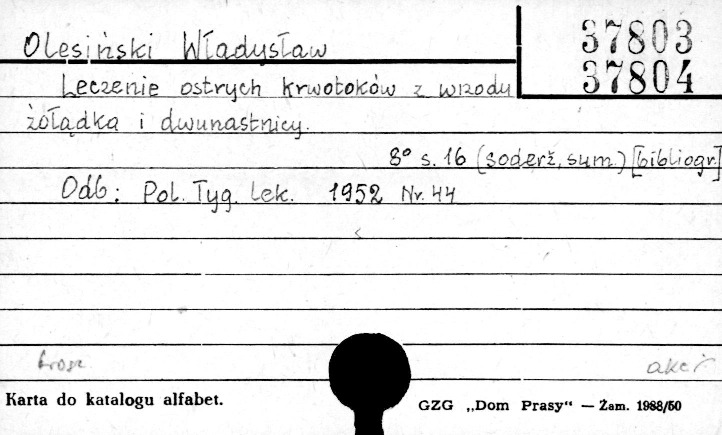 Olesiński Władysław
37803
37804
Leczenie ostrych krwotoków z wrzodu
żołądka i dwunastnicy.
8° s. 16 (soderž, sum.) [bibliogr.]
Odb: Pol. Tyg. lek. 1952 Nr. 44
brosz
Karta do katalogu alfabet.
GZG „Dom Prasy“ — Zam. 1988/50